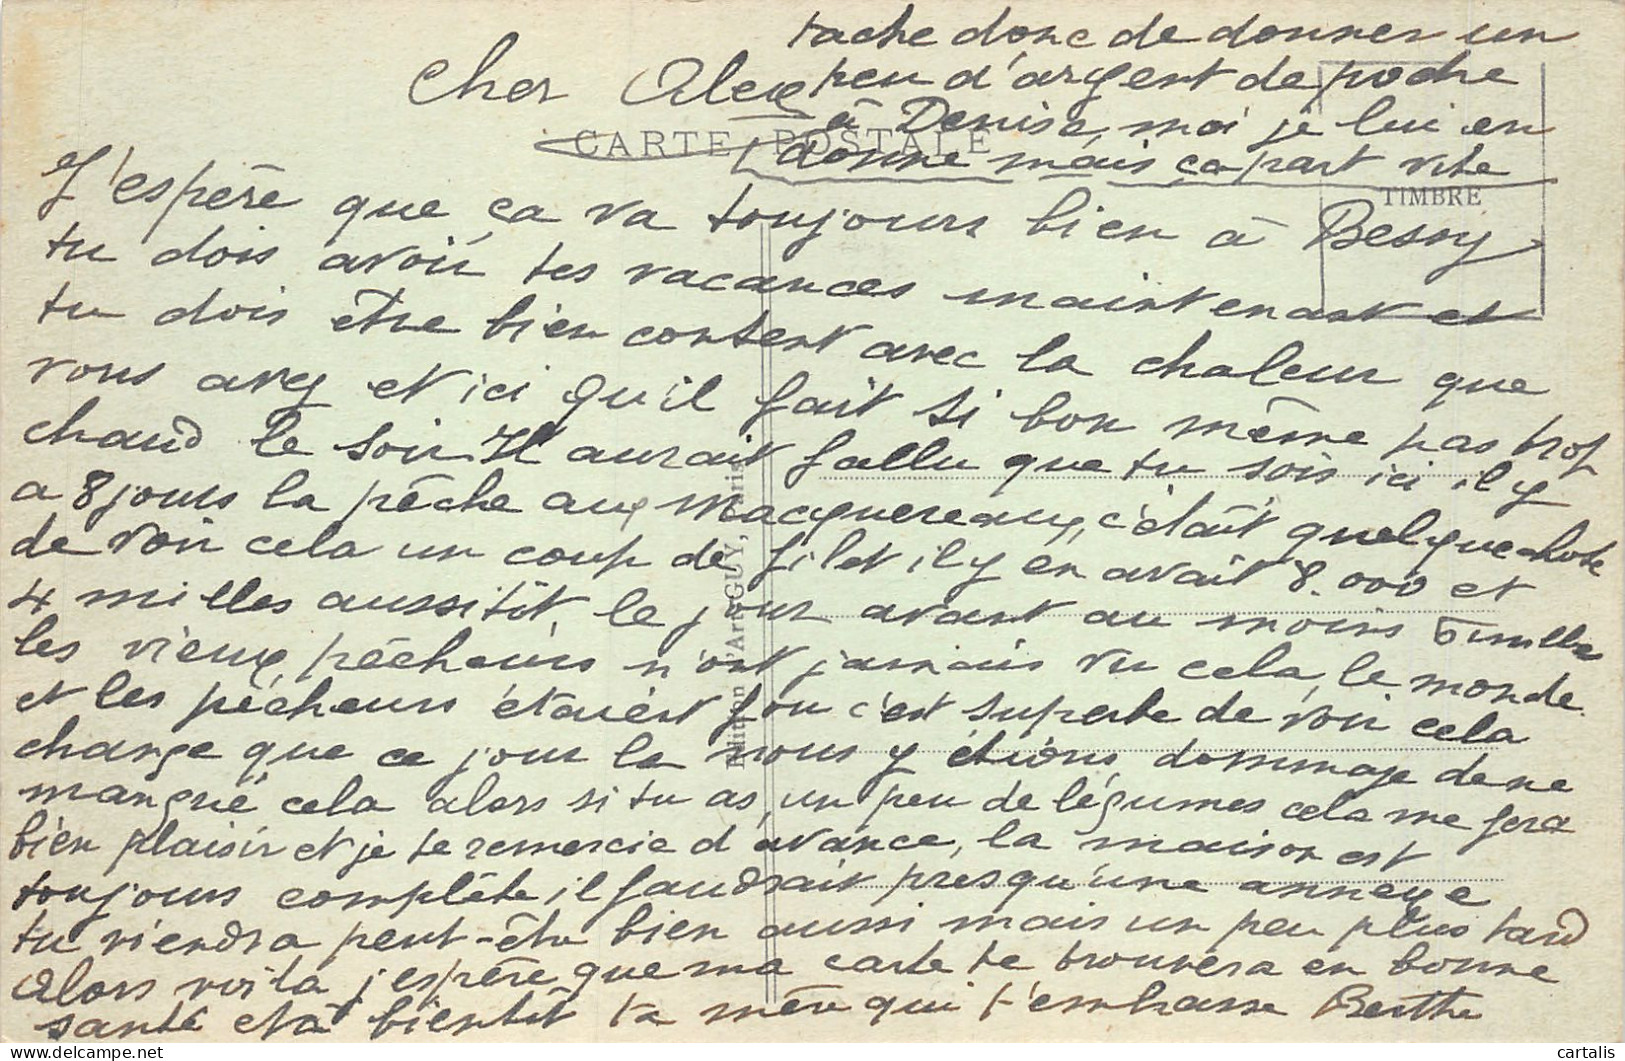 tache donc de donner un
peu d'argent de poche
à Denise, moi je lui en
donne mais ça part vite
Cher Alex
CARTE POSTALE
TIMBRE
J'espère que ça va toujours bien à Bessy
tu dois avoir tes vacances maintenant et
tu dois être bien content avec la chaleur que
vous avez et ici qu'il fait si bon même pas trop
chaud le soir. Il aurait fallu que tu sois ici il y
a 8 jours la pêche aux Macquereaux, c'était quelque chose
de voir cela un coup de filet il y en avait 8.000 et
4 milles aussitôt, le jour avant au moins 5 milles
les vieux pêcheurs n'ont jamais vu cela, le monde
et les pêcheurs étaient fou c'est superbe de voir cela
change que ce jour la nous y étions dommage de ne
manqué cela alors si tu as, un peu de légumes cela me fera
bien plaisir et je te remercie d'avance, la maison est
toujours complète il faudrait presqu'une annexe
tu viendra peut-être bien aussi mais un peu plus tard
Alors voila j'espère que ma carte te trouvera en bonne
santé et à bientôt ta mère qui t'embrasse Berthe
Edition d'Art GUY, Paris
cartalis